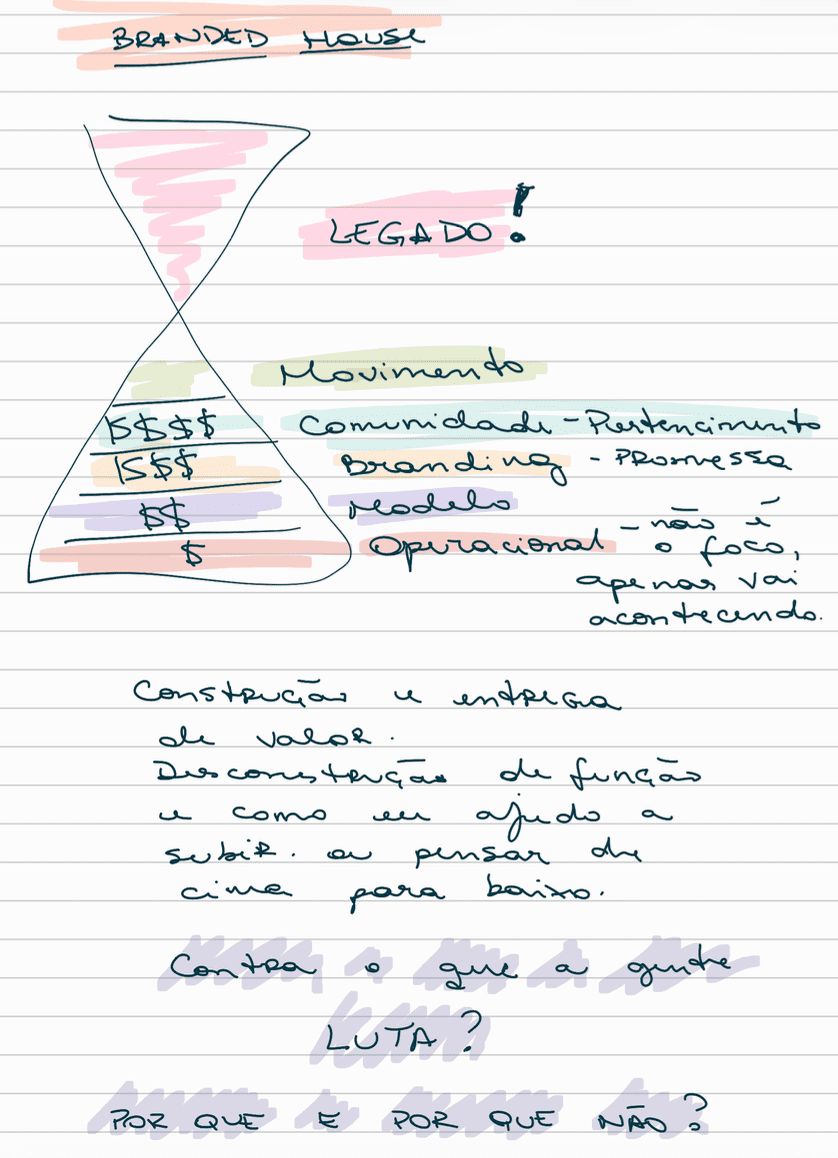 BRANDED HOUSE
LEGADO!
Movimento
$$$$ Comunidade - Pertencimento
$$$ Branding - PROMESSA
$$ Modelo
$ Operacional - não é
o foco,
apenas vai
acontecendo.
Construção e entrega
de valor.
Desconstrução de função
e como eu ajudo a
subir. ou pensar de
cima para baixo.
Contra o que a gente
LUTA?
POR QUE E POR QUE NÃO?